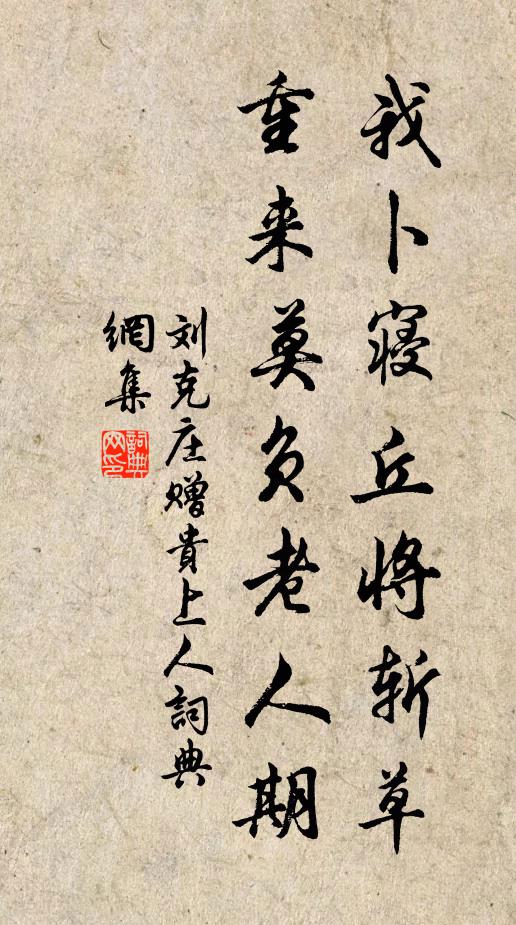 我卜寝丘将斩草
重来莫负老人期
刘克庄赠貴上人詞典
網集
詞典網印